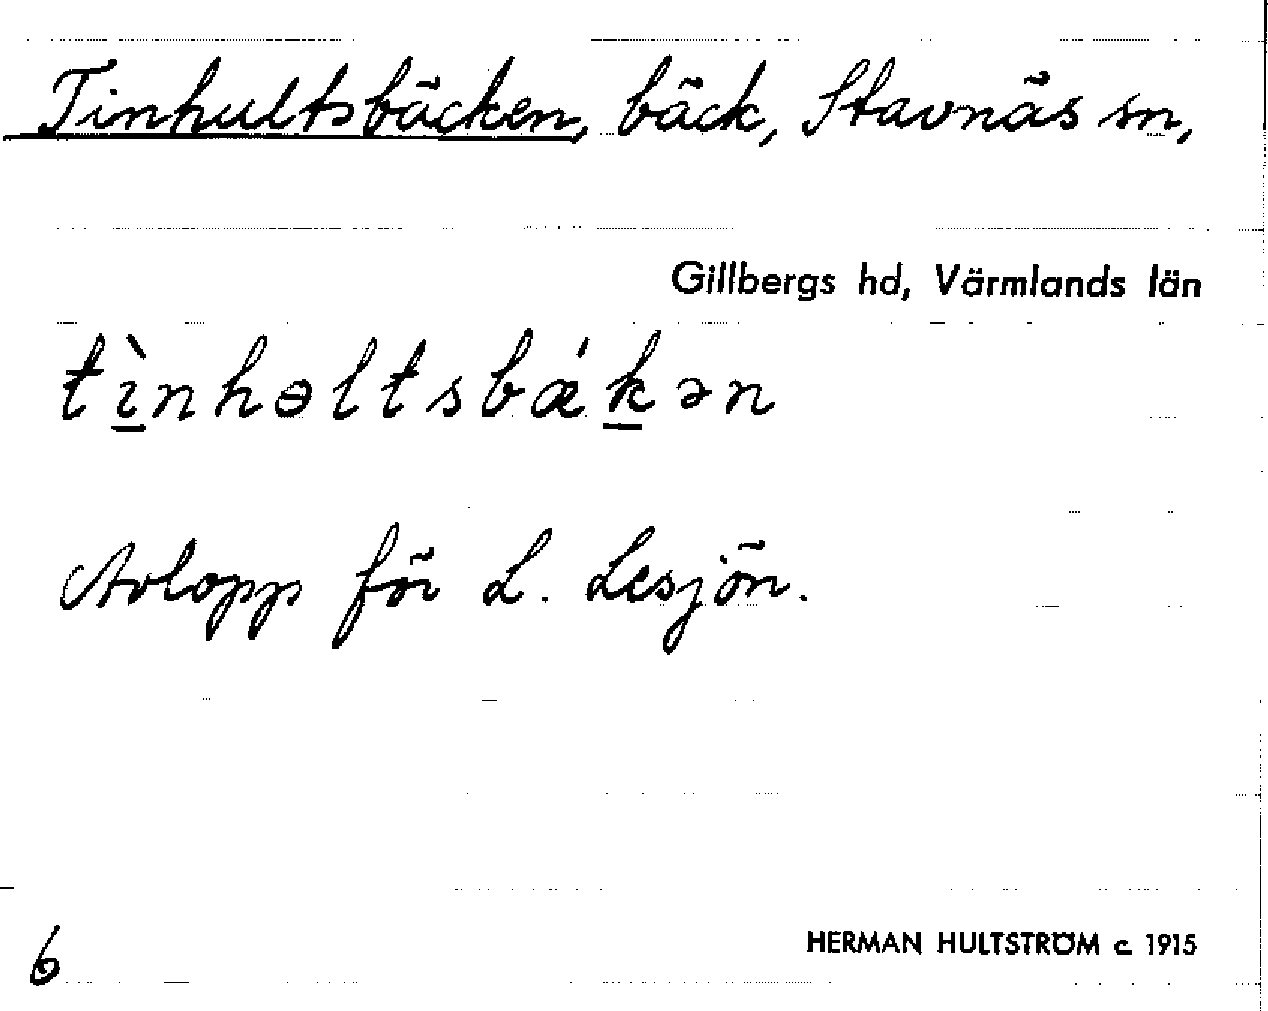 Tinhultsbäcken, bäck, Stavnäs sn,
Gillbergs hd, Värmlands län
tı̱̀nhɘltsbǽḵən
Avlopp för L. Lesjön.
6
HERMAN HULTSTRÖM c. 1915